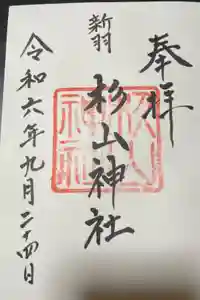 奉拝
新羽
杉山神社
令和六年九月二十四日
杉山
神社